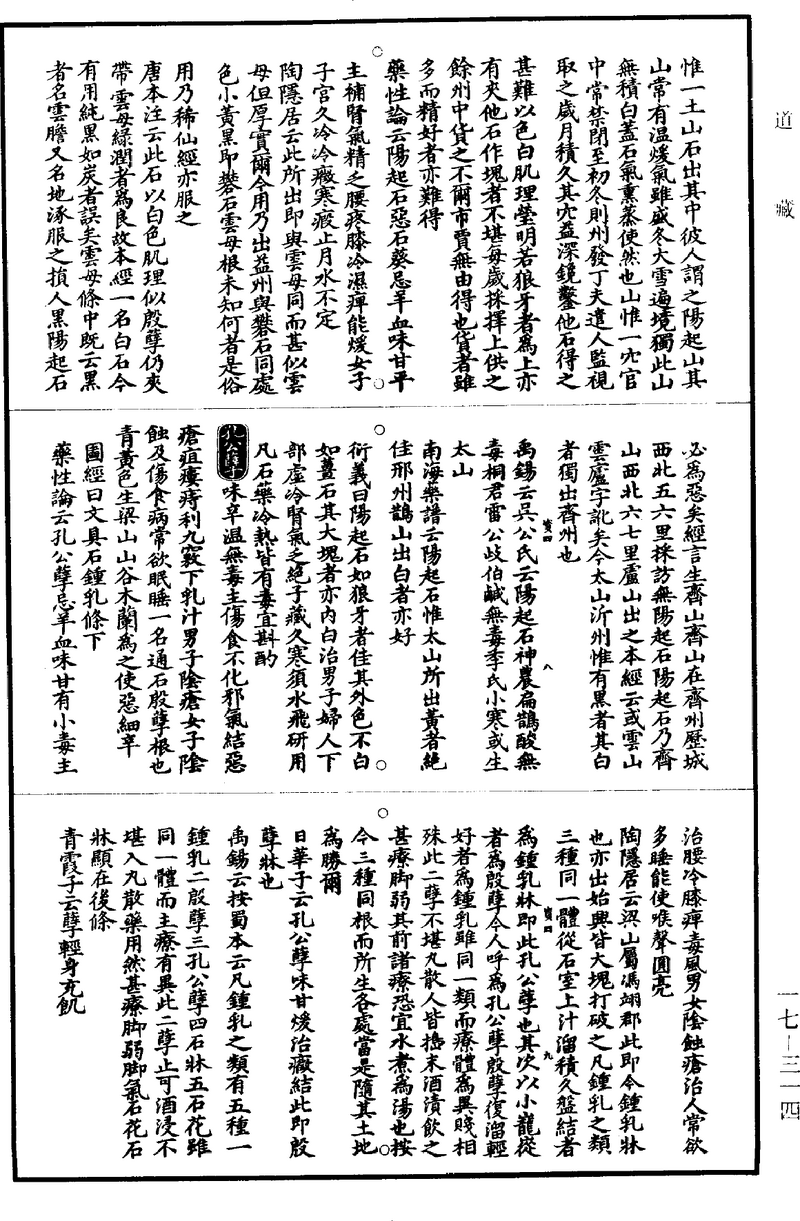 道藏
惟一土山石出其中彼人謂之陽起山其
山常有温煖氣雖盛冬大雪遍境獨此山
無積白蓋石氣熏蒸使然也山惟一穴官
中常禁閉至初冬則州發丁夫遣人監視
取之歲月積久其穴益深鐫鑿他石得之
甚難以色白肌理瑩明若狼牙者爲上亦
有夾他石作塊者不堪每歲採擇上供之
餘州中貨之不爾市賈無由得也貨者雖
多而精好者亦難得
藥性論云陽起石惡石葵忌羊血味甘平
主補腎氣精乏腰疼膝冷濕痺能煖女子
子宫久冷冷癥寒瘕止月水不定
陶隱居云此所出即與雲母同而甚似雲
母但厚實爾今用乃出益州與礬石同處
色小黄黑即礬石雲母根未知何者是俗
用乃稀仙經亦服之
唐本注云此石以白色肌理似殷孽仍夾
帶雲母緑潤者爲良故本經一名白石今
有用純黑如炭者誤矣雲母條中既云黑
者名雲膽又名地涿服之損人黑陽起石
必爲惡矣經言生齊山齊山在齊州歷城
西北五六里採訪無陽起石陽起石乃齊
山西北六七里盧山出之本經云或雲山
雲盧字訛矣今太山沂州惟有黑者其白
者獨出齊州也
禹錫云吴公氏云陽起石神農扁鵲酸無
毒桐君雷公歧伯鹹無毒季氏小寒或生
太山
南海藥譜云陽起石惟太山所出黄者絶
佳邢州鵲山出白者亦好
衍義曰陽起石如狼牙者佳其外色不白
如薑石其大塊者亦内白治男子婦人下
部虚冷腎氣乏絶子藏久寒須水飛研用
凡石藥冷熱皆有毒宜斟酌
孔公孽味辛温無毒主傷食不化邪氣結惡
瘡疽瘻痔利九竅下乳汁男子陰瘡女子陰
蝕及傷食病常欲眠睡一名通石殷孽根也
青黄色生梁山山谷木蘭爲之使惡細辛
圖經曰文具石鍾乳條下
藥性論云孔公孽忌羊血味甘有小毒主
治腰冷膝痺毒風男女陰蝕瘡治人常欲
多睡能使喉聲圓亮
陶隱居云梁山屬馮翊郡此即今鍾乳牀
也亦出始興皆大塊打破之凡鍾乳之類
三種同一體從石室上汁溜積久盤結者
爲鍾乳牀即此孔公孽也其次以小巃嵸
者爲殷孽今人呼爲孔公孽殷孽復溜輕
好者爲鍾乳雖同一類而療體爲異賤相
殊此二孽不堪丸散人皆搗末酒漬飲之
甚療脚弱其前諸療恐宜水煮爲湯也按
今三種同根而所生各處當是隨其土地
爲勝爾
日華子云孔公孽味甘煖治癥結此即殷
孽牀也
禹錫云按蜀本云凡鍾乳之類有五種一
鍾乳二殷孽三孔公孽四石牀五石花雖
同一體而主療有異此二孽止可酒浸不
堪入丸散藥用然甚療脚弱脚氣石花石
牀顯在後條
青霞子云孽輕身充飢
一七—三一四